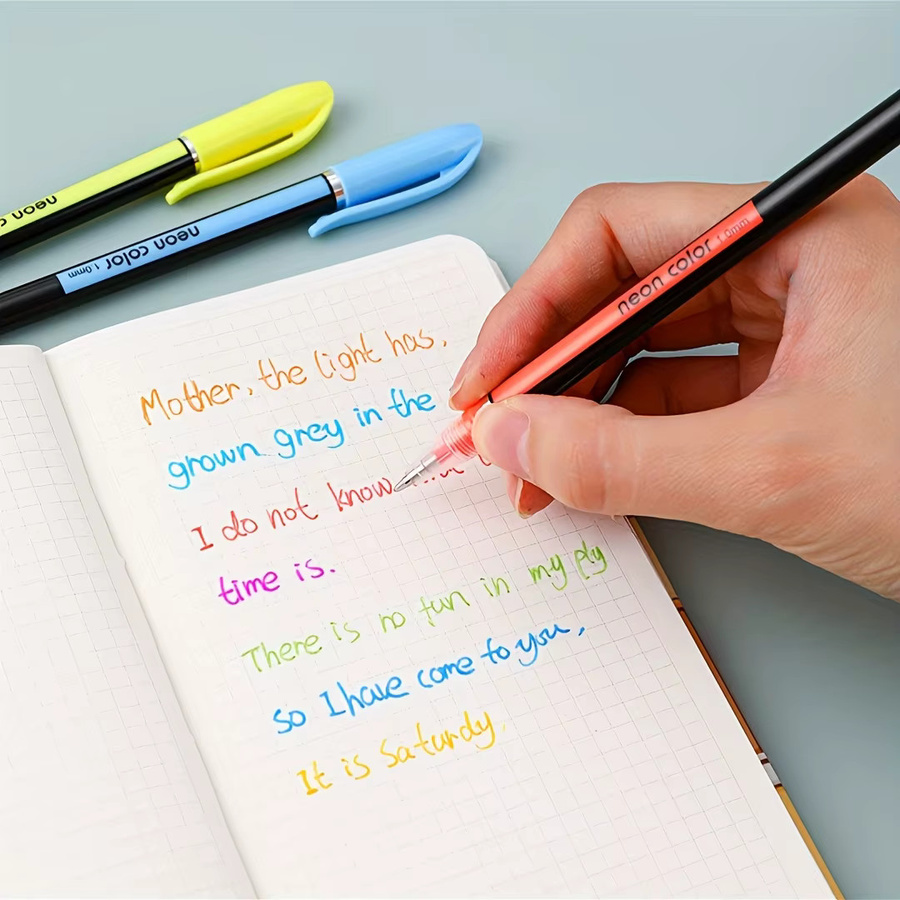 neon
neon color 1.0mm
neon color 1.0mm
Mother, the light has,
grown grey in the
I do not know
time is.
There is no fun in my ply
so I have come to you,
It is Saturdy,